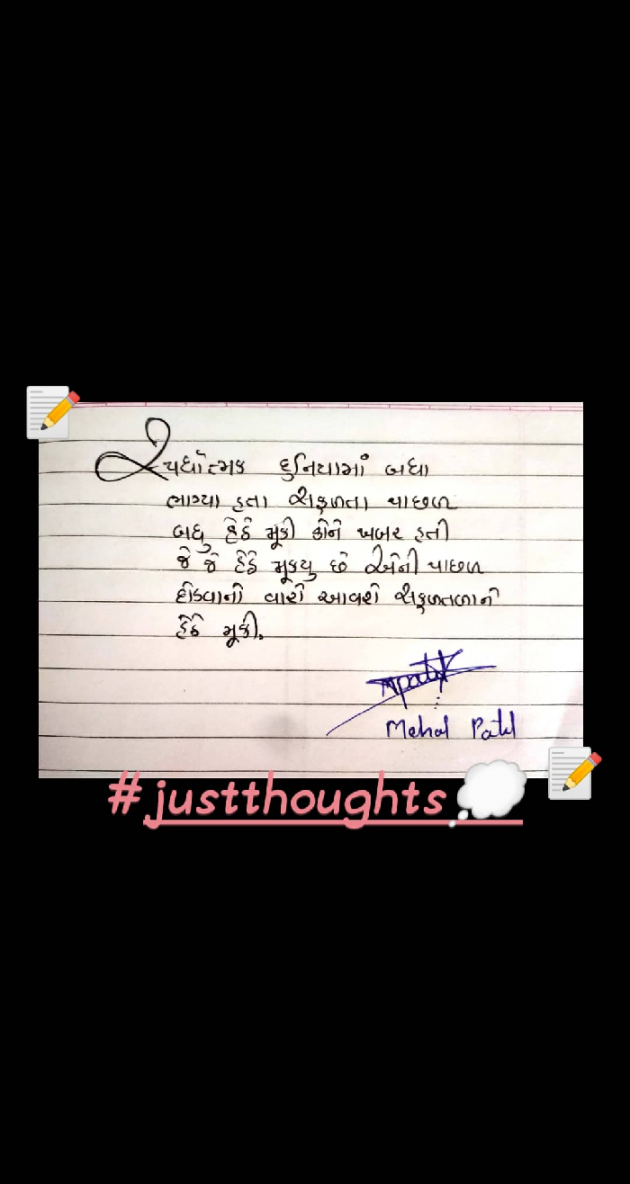 સ્પર્ધાત્મક દુનિયામાં બધા
ભાગ્યા હતા સફળતા પાછળ
બધુ હેઠે મૂકી કોને ખબર હતી
જે જે હેઠે મૂક્યુ છે એની પાછળ
દોડવાનો વારો આવશે સફળતાને
હેઠે મૂકી.
Mpatel
Mehal Patel
#justthoughts